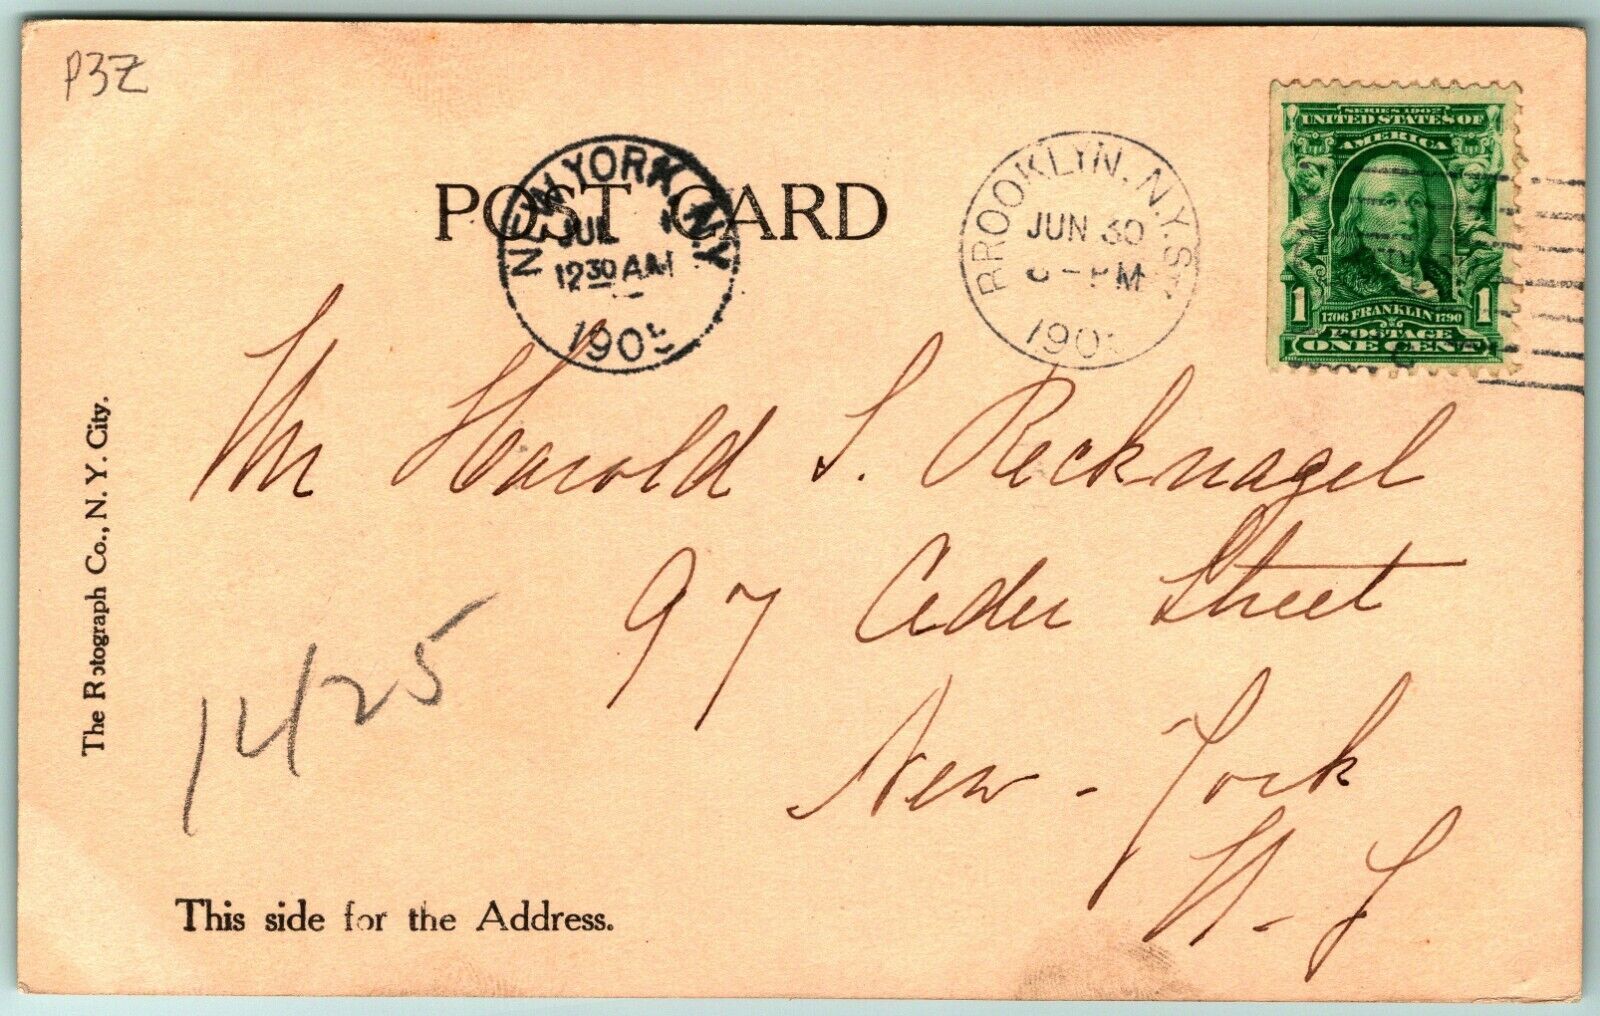 P3Z
POST CARD
NEW YORK, N.Y.
JUL 1
12 30 AM
1905
BROOKLYN, N.Y.
JUN 30
PM
1905
SERIES 1902
UNITED STATES OF
AMERICA
1 1
1706 FRANKLIN 1790
POSTAGE
ONE CENT
Mr Harold S. Recknagel
97 Ceder Street
New-York
N-Y
14/25
The Rotograph Co., N. Y. City.
This side for the Address.